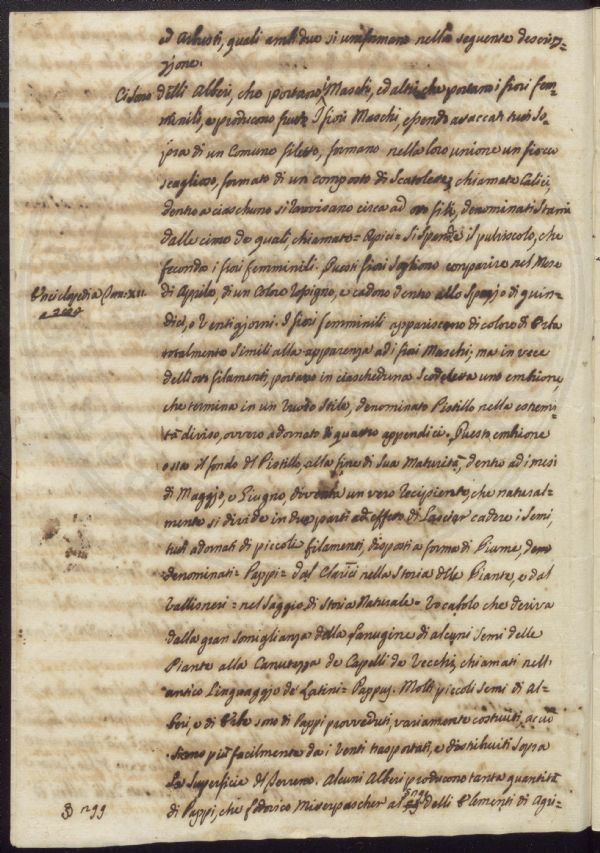 ed Arbusti, quali ambidue si uniformano nella seguente descriz=
zione.
Ci sono delli Alberi, che portano i Maschi, ed altri che portano i fiori fem=
minili, e producono frutto I fiori Maschi, essendo attaccati tutti so=
pra di un Comune filetto, formano nella loro unione un fiocco
scaglioso, formato di un composto di Scatolette, chiamate Calici,
dentro a ciascheduno si ravvisano circa ad otto fili, denominati Stami
dalle cime de quali, chiamate= Apici= si spande il pulviscolo, che
feconda i fiori femminili. Questi fiori sogliono comparire nel Mese
Enciclopedia Tom: XII.
di Aprile, di un Colore rossigno, e cadono dentro allo Spazio di quin=
dici, o Venti giorni. I fiori femminili appariscono di colore di Erba
totalmente simili alla apparenza ad i fiori Maschi; ma in vece
delli otto filamenti, portano in ciascheduna Scodeletta uno embrione,
che termina in un Stilo, denominato Pistillo nella estremi=
tà diviso, ovvero adornato di quattro appendici. Questo embrione
o sia il fondo del Pistillo, alla fine di sua Maturità, dentro ad i mesi
di Maggio, e Giugno, diventa un vero recipiente, che natural=
mente si divide in due parti ad effetto di Lasciar cadere i Semi,
tutti adornati di piccoli filamenti, disposti a forma di Piume,
denominati= Pappi= dal Clarici nella Storia delle Piante, e dal
Vallisneri= nel Saggio di Storia Naturale= Vocabolo che deriva
dalla gran somiglianza della Lanugine di alcuni semi delle
Piante alla Canutezza de Capelli de Vecchi, chiamati nell'
antico Linguaggio de' Latini= Pappus. Molti piccoli semi di Al=
beri, e di Erbe sono di Pappi provveduti, variamente costruiti, acciò
siano più facilmente da i Venti trasportati, e distribuiti Sopra
La Superficie del Terreno. Alcuni Alberi producono tanta quantità
di Pappi, che Federico Miserpascher al delli Elementi di Agri=